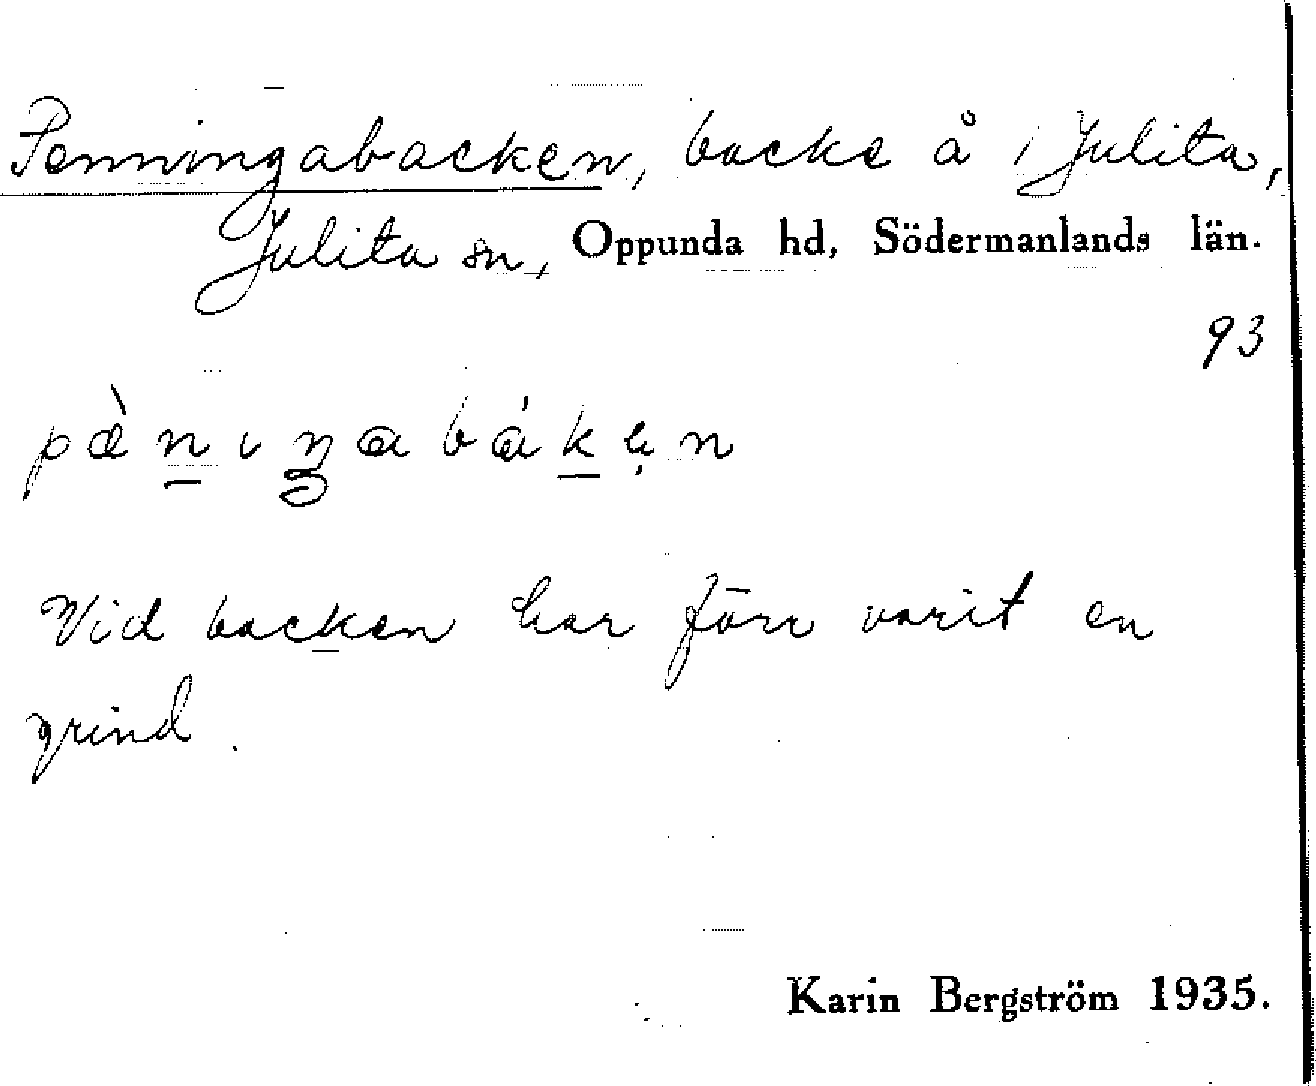 Penningabacken, backe å 1 Julita,
Julita sn, Oppunda hd, Södermanlands län.
93
pæ̀n̲ıŋabák̲ẹn
Vid backen har förr varit en
grind.
Karin Bergström 1935.